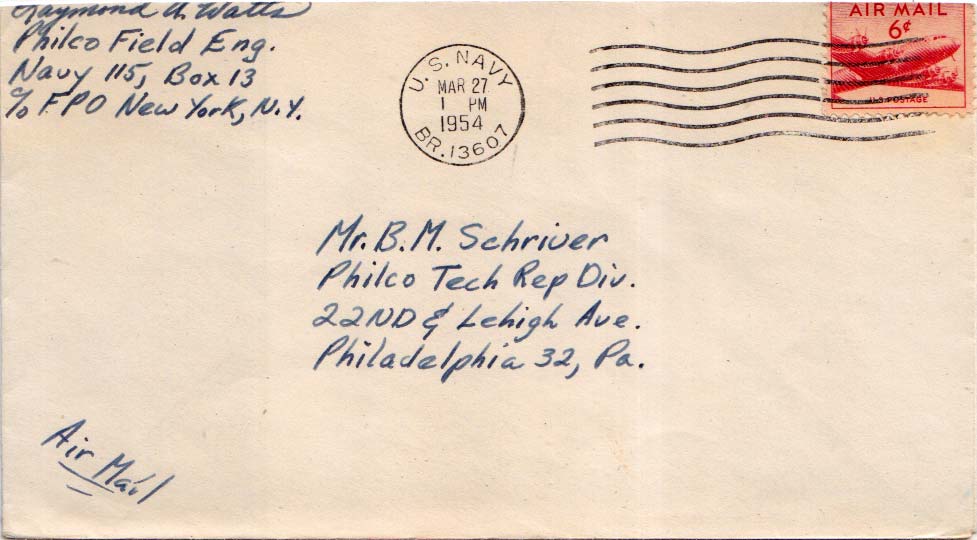 Raymond A. Watts
Philco Field Eng.
Navy 115, Box 13
c/o FPO New York, N.Y.
U.S. NAVY
MAR 27
1 PM
1954
BR. 13607
AIR MAIL
6¢
U.S. POSTAGE
Mr. B.M. Schriver
Philco Tech Rep Div.
22ND & Lehigh Ave.
Philadelphia 32, Pa.
Air Mail